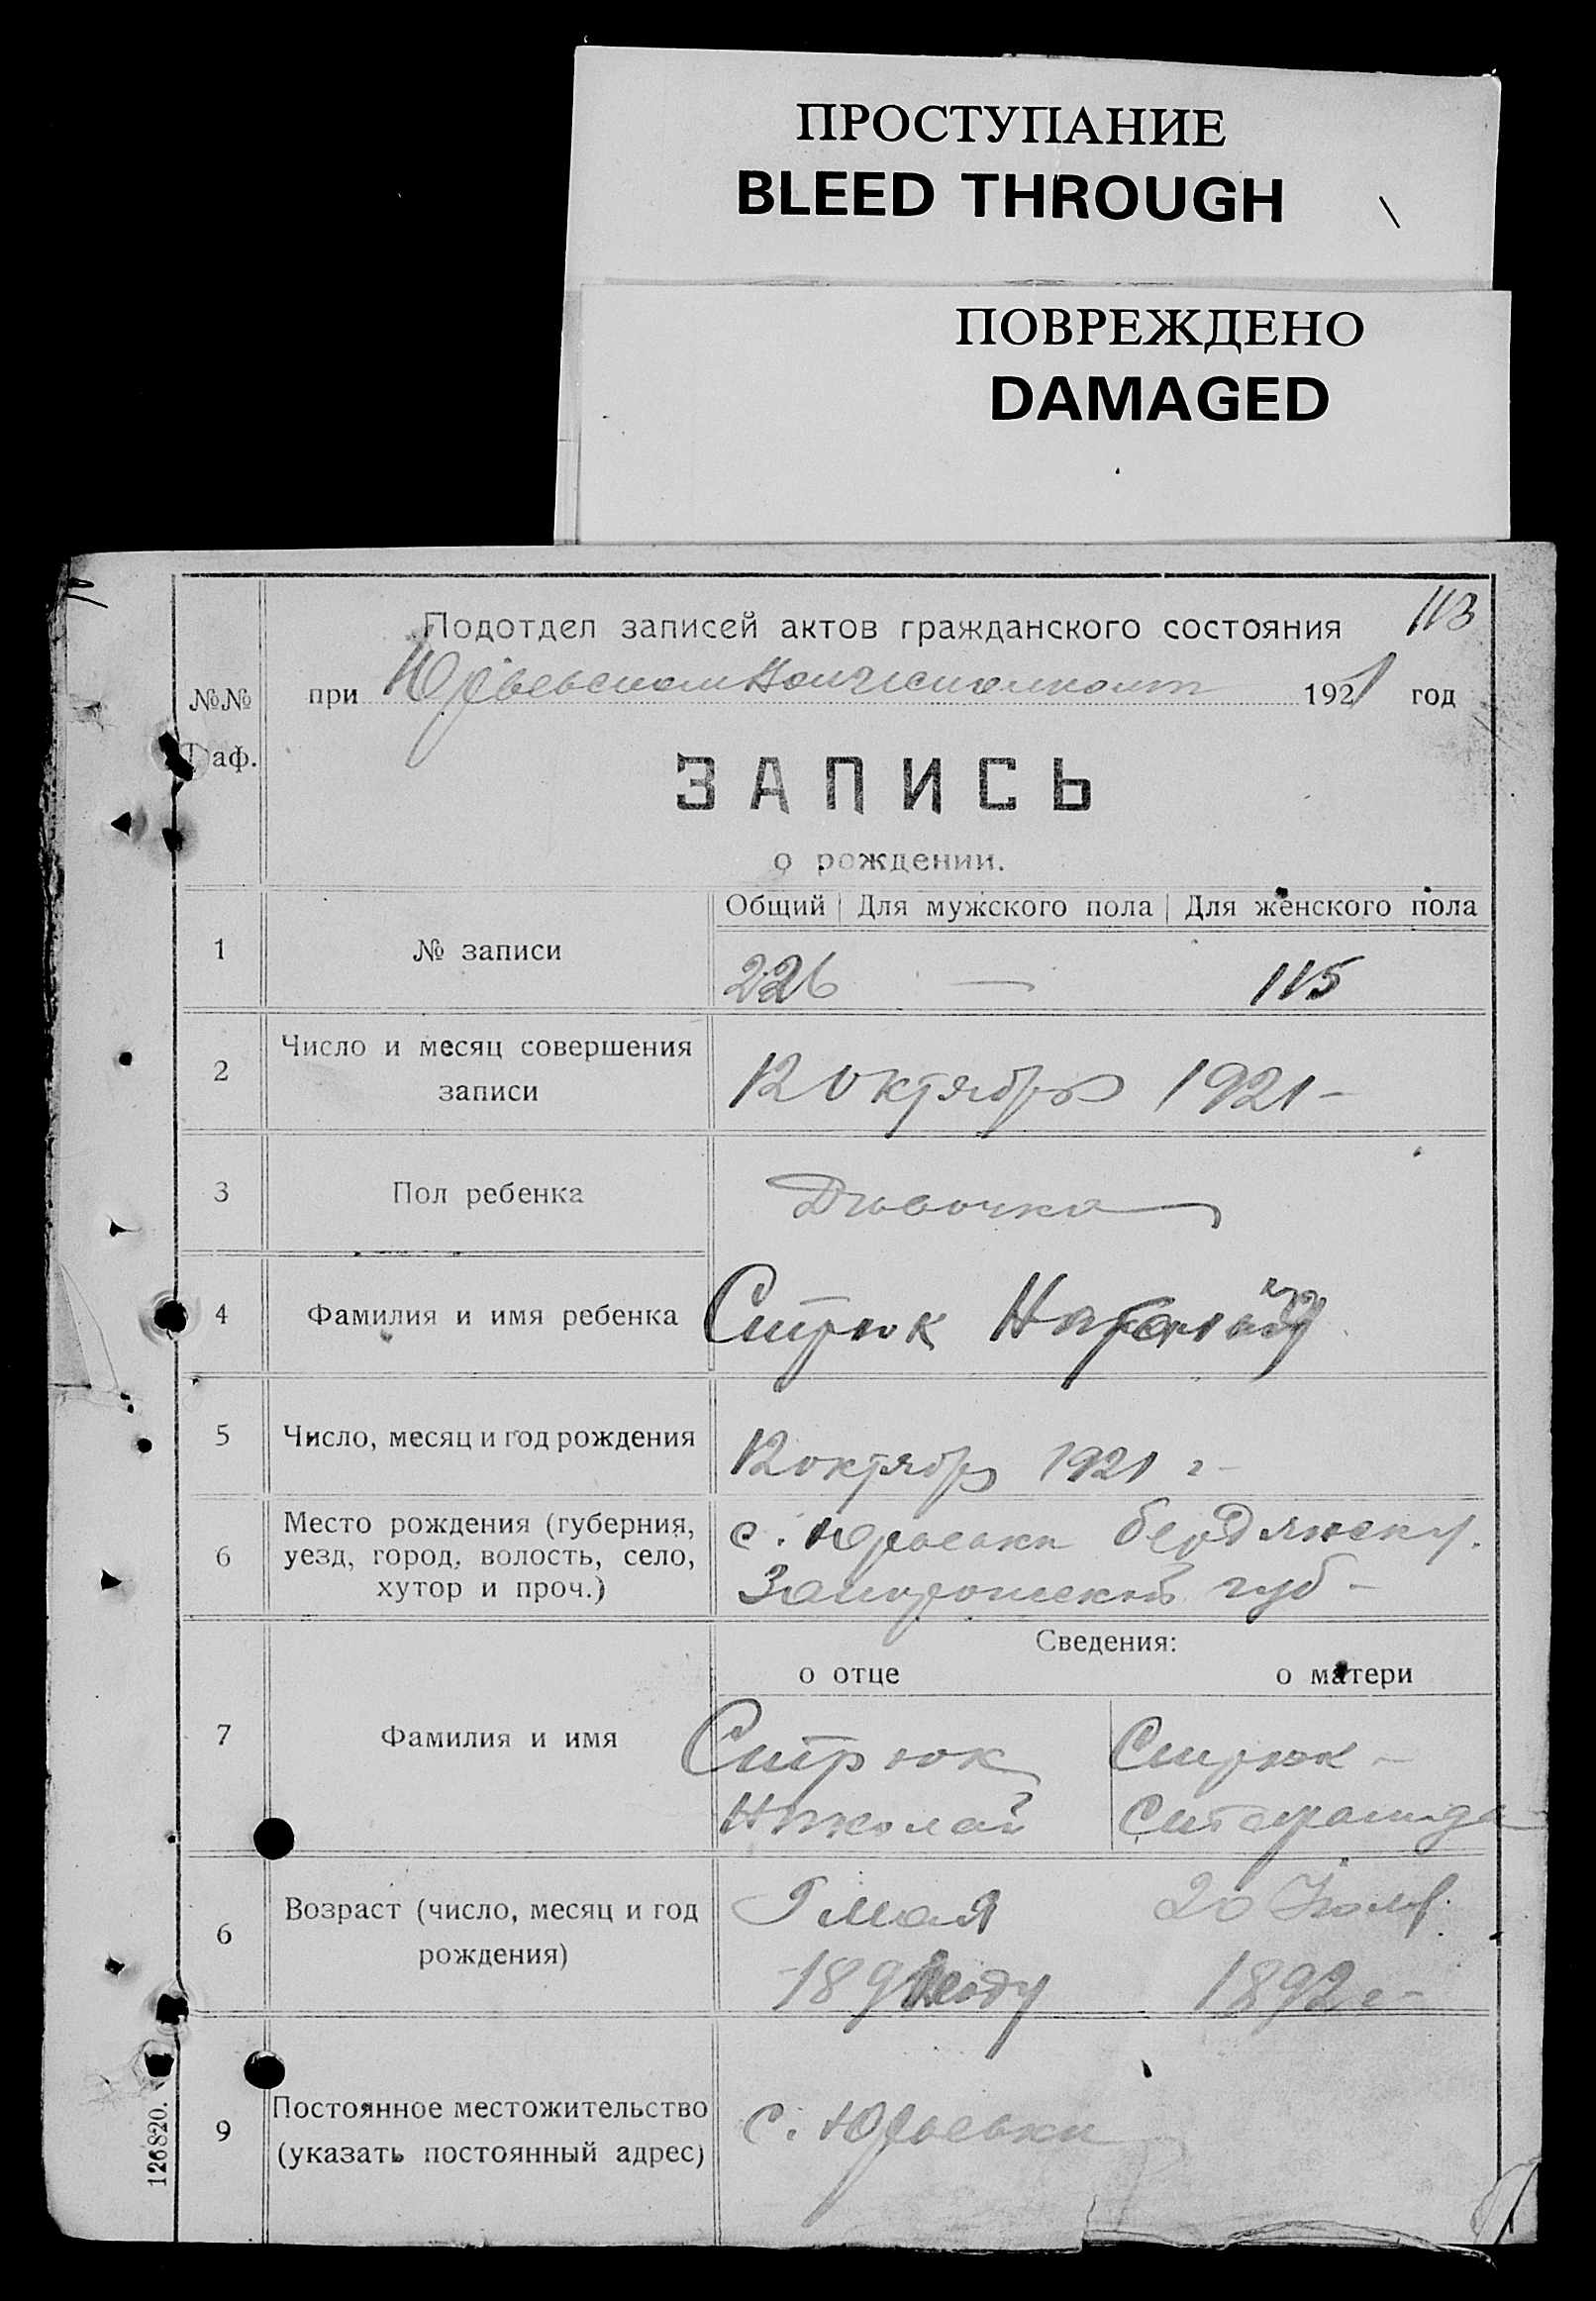 ПРОСТУПАНИЕ
BLEED THROUGH
ПОВРЕЖДЕНО
DAMAGED
113
Подотдел записей актов гражданского состояния
№№ Граф.
при Юрьевском 1921 год
ЗАПИСЬ
о рождении.
Общий Для мужского пола Для женского пола
1 № записи 226 — 115
2 Число и месяц совершения
записи
12 октября 1921 –
3 Пол ребенка
4 Фамилия и имя ребенка Стрюк
5 Число, месяц и год рождения 12 октябр 1921 г –
6 Место рождения (губерния,
уезд, город, волость, село,
хутор и проч.)
с. Юрьевки Бердянск у.
губ –
Сведения:
о отце о матери
7 Фамилия и имя
Стрюк Стрюк –
Николай
6 Возраст (число, месяц и год
рождения)
мая 20
189 году 1892 г –
9 Постоянное местожительство
(указать постоянный адрес)
с. Юрьевки
126820.